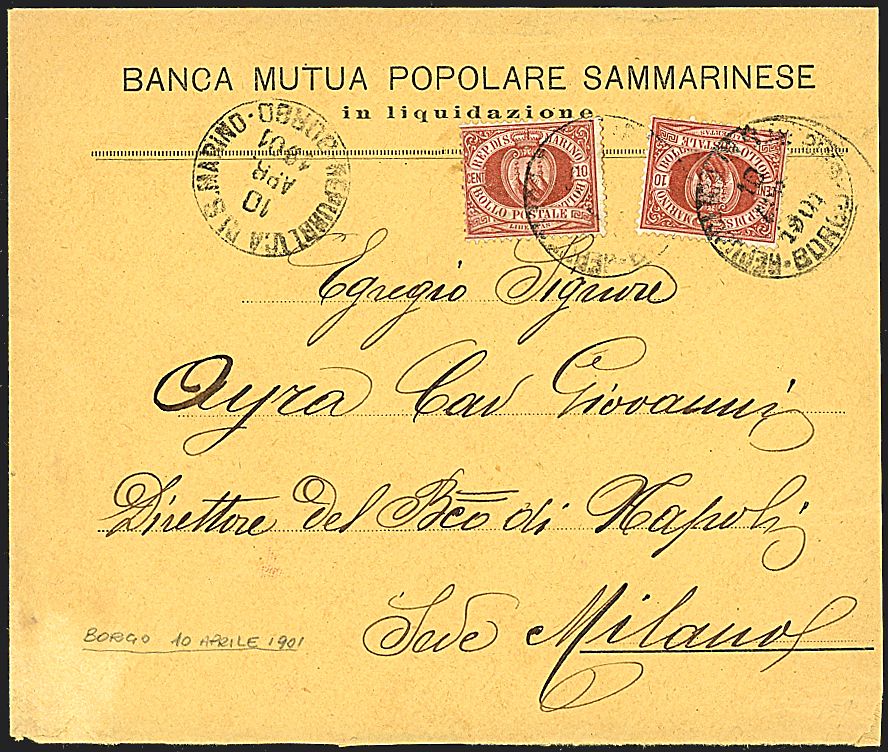 BANCA MUTUA POPOLARE SAMMARINESE
in liquidazione
REPUBBLICA DI S. MARINO · BORGO ·
10
APR
1901
REP. DI S. MARINO
CENT. 10
BOLLO POSTALE
LIBERTAS
REP. DI S. MARINO
CENT. 10
BOLLO POSTALE
LIBERTAS
10
1901
BORGO
Egregio Signore
Ayra Cav Giovanni
Direttore del Bco di Napoli
Sede Milano
BORGO 10 APRILE 1901